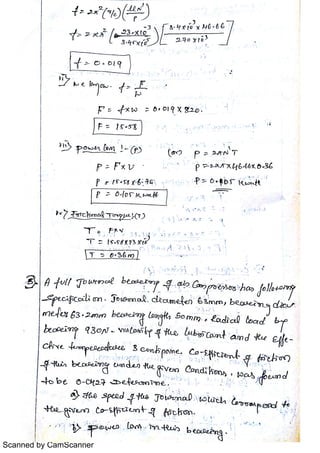 f = 2π²(r/c)(μn'/p)
f = 2π² ( 23×10⁻³ / 3.4×10⁻⁵ ) [ 3.4×10⁻³ × 46.66 / 270×10³ ]
f = 0.019
ii) we know. f = F/W
F = f×w = 0.019 × 820.
F = 15.58
iii) power loss :- (P) (or) P = 2πN'T
P = F×V P = 2×π×46.66×0.36
P = 15.58×6.76 P = 0.105 K watt
P = 0.105 K watt
iv) Frictional Torque (T)
T = F×r
T = 15.58×23×10⁻³
T = 0.36 m
3. A full Journal bearing of air compressor has following
specification. Journal diameter 63mm, bearing dia
meter 63.2mm bearing length 50mm, Radial load by
bearing 930N. velocity of the lubricant and the effe-
ctive temperature 8 centipoise. co-efficient of friction
of this bearing under the given conditions, was found
to be 0.0427 Determine.
a) The speed of the Journal which correspond to
the given co-efficient of friction.
b) power loss in this bearing.
Scanned by CamScanner